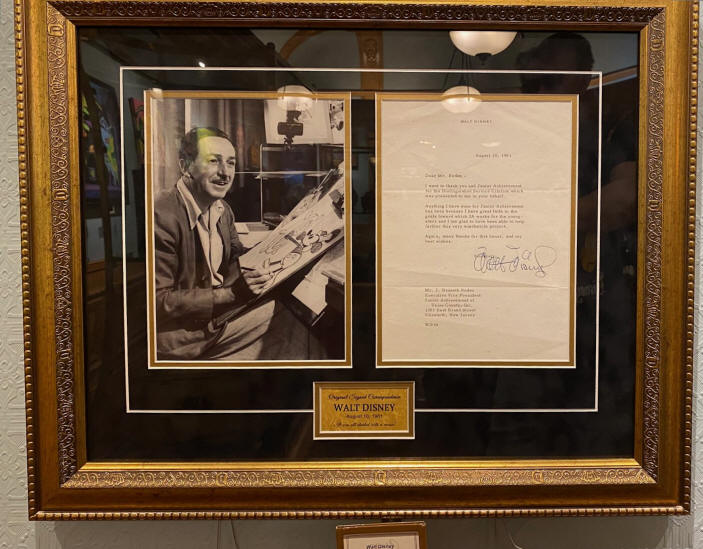 WALT DISNEY
August 10, 1961
Dear Mr. Roden -
I want to thank you and Junior Achievement
for the Distinguished Service Citation which
was presented to me in your behalf.
Anything I have done for Junior Achievement
has been because I have great faith in the
goals toward which JA works for the young-
sters and I am glad to have been able to help
further this very worthwhile project.
Again, many thanks for this honor, and my
best wishes.
Walt Disney
Executive Vice President
Junior Achievement of
Union County, Inc.
Elizabeth, New Jersey
WD:
Original Signed Correspondence
WALT DISNEY
August 10, 1961
It was all started with a mouse
Walt Disney